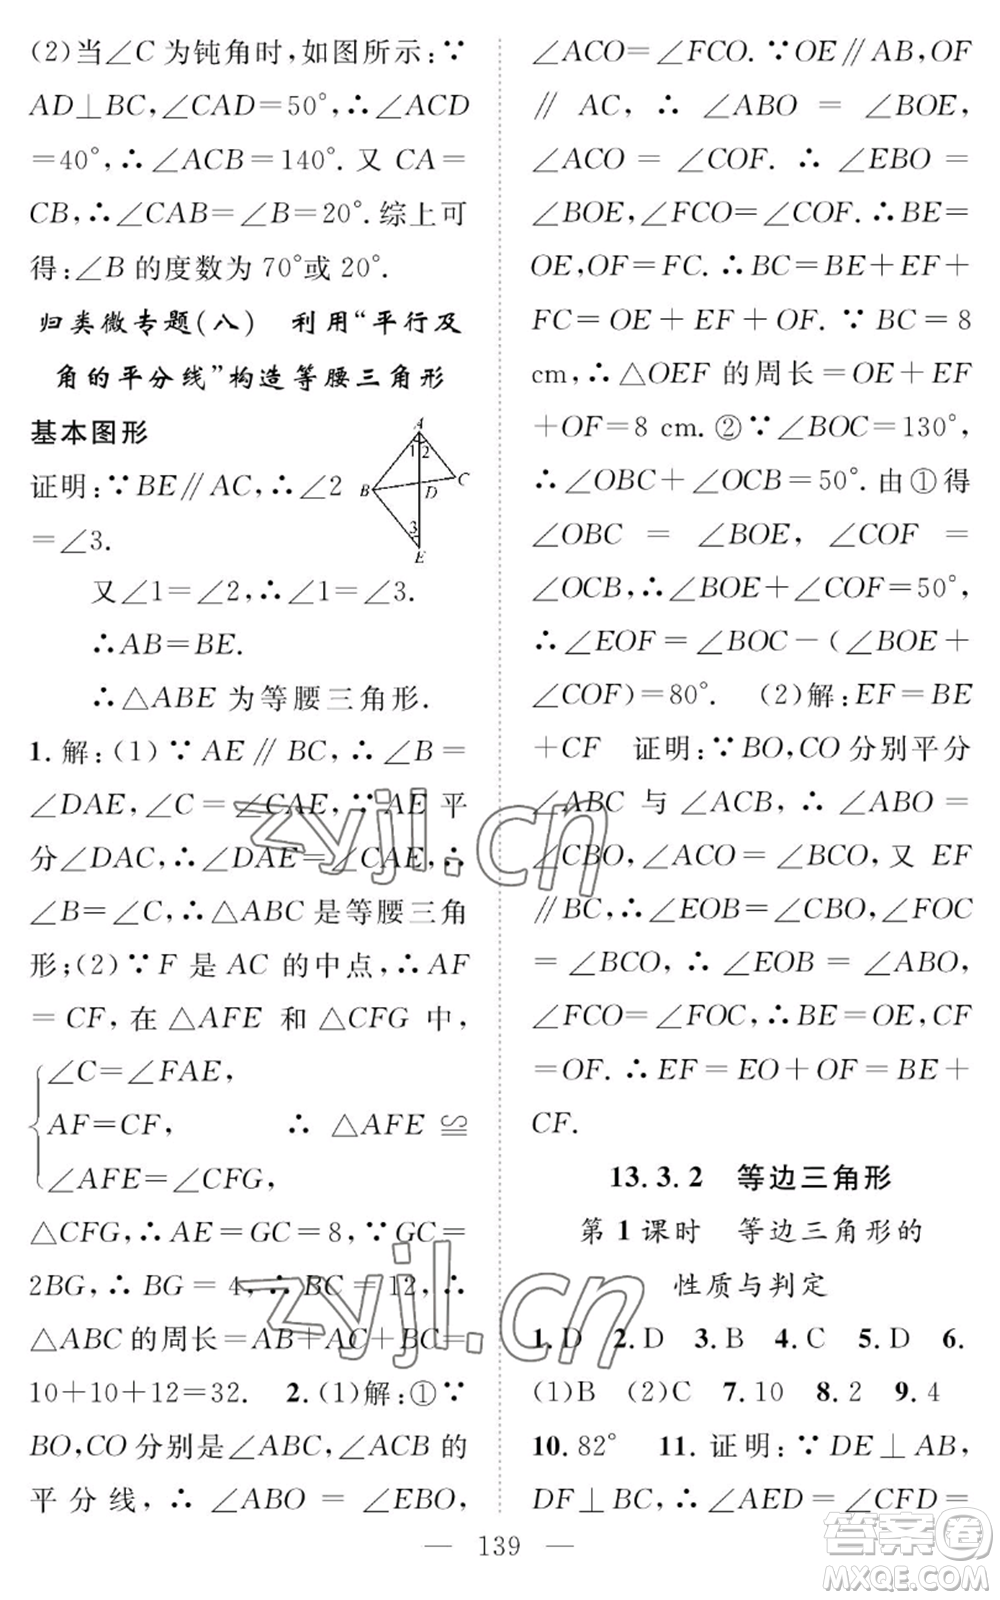 (2)当∠C 为钝角时,如图所示:∵
AD⊥BC,∠CAD=50°,∴∠ACD
=40°,∴∠ACB=140°.又 CA=
CB,∴∠CAB=∠B=20°.综上可
得:∠B 的度数为 70°或 20°.
归类微专题(八) 利用“平行及
角的平分线”构造等腰三角形
基本图形
证明:∵BE∥AC,∴∠2
=∠3.
又∠1=∠2,∴∠1=∠3.
∴AB=BE.
∴△ABE 为等腰三角形.
A
1 2
B
D
C
3
E
1.解:(1)∵AE∥BC,∴∠B=
∠DAE,∠C=∠CAE,∵AE 平
分∠DAC,∴∠DAE=∠CAE,∴
∠B=∠C,∴△ABC 是等腰三角
形;(2)∵F 是 AC 的中点,∴AF
=CF,在△AFE 和△CFG 中,
∠C=∠FAE,
AF=CF, ∴△AFE≌
∠AFE=∠CFG,
△CFG,∴AE=GC=8,∵GC=
2BG,∴BG=4,∴BC=12,∴
△ABC 的周长=AB+AC+BC=
10+10+12=32. 2.(1)解:①∵
BO,CO 分别是∠ABC,∠ACB 的
平分线,∴∠ABO=∠EBO,
∠ACO=∠FCO.∵OE∥AB,OF
∥AC,∴∠ABO=∠BOE,
∠ACO=∠COF.∴∠EBO=
∠BOE,∠FCO=∠COF.∴BE=
OE,OF=FC.∴BC=BE+EF+
FC=OE+EF+OF.∵BC=8
cm,∴△OEF 的周长=OE+EF
+OF=8 cm.②∵∠BOC=130°,
∴∠OBC+∠OCB=50°.由①得
∠OBC=∠BOE,∠COF=
∠OCB,∴∠BOE+∠COF=50°,
∴∠EOF=∠BOC-(∠BOE+
∠COF)=80°. (2)解:EF=BE
+CF 证明:∵BO,CO 分别平分
∠ABC 与∠ACB,∴∠ABO=
∠CBO,∠ACO=∠BCO,又 EF
∥BC,∴∠EOB=∠CBO,∠FOC
=∠BCO,∴∠EOB=∠ABO,
∠FCO=∠FOC,∴BE=OE,CF
=OF.∴EF=EO+OF=BE+
CF.
13.3.2 等边三角形
第 1 课时 等边三角形的
性质与判定
1.D 2.D 3.B 4.C 5.D 6.
(1)B (2)C 7.10 8.2 9.4
10.82° 11.证明:∵DE⊥AB,
DF⊥BC,∴∠AED=∠CFD=
— 139 —
zyjl.cn
zyjl.cn
答案卷
MXQE.COM